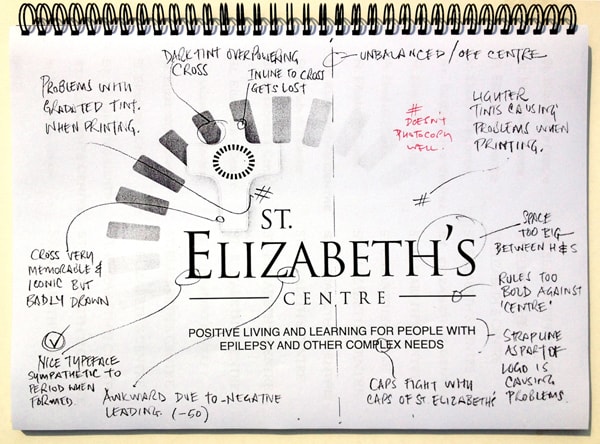 DARK TINT OVERPOWERING
CROSS
INLINE TO CROSS
GETS LOST
UNBALANCED/OFF CENTRE
PROBLEMS WITH
GRADATED TINT.
WHEN PRINTING.
#
DOESN'T
PHOTOCOPY
WELL.
LIGHTER
TINTS CAUSING
PROBLEMS WHEN
PRINTING.
#
#
ST.
ELIZABETH'S
CENTRE
POSITIVE LIVING AND LEARNING FOR PEOPLE WITH
EPILEPSY AND OTHER COMPLEX NEEDS
SPACE
TOO BIG
BETWEEN H & S
CROSS VERY
MEMORABLE &
ICONIC BUT
BADLY DRAWN
RULES TOO
BOLD AGAINST
'CENTRE'
NICE TYPEFACE
SYMPATHETIC TO
PERIOD WHEN
FORMED.
AWKWARD DUE TO -NEGATIVE
LEADING. (-50)
CAPS FIGHT WITH
CAPS OF ST ELIZABETH'S
STRAPLINE
AS PART OF
LOGO IS
CAUSING
PROBLEMS.